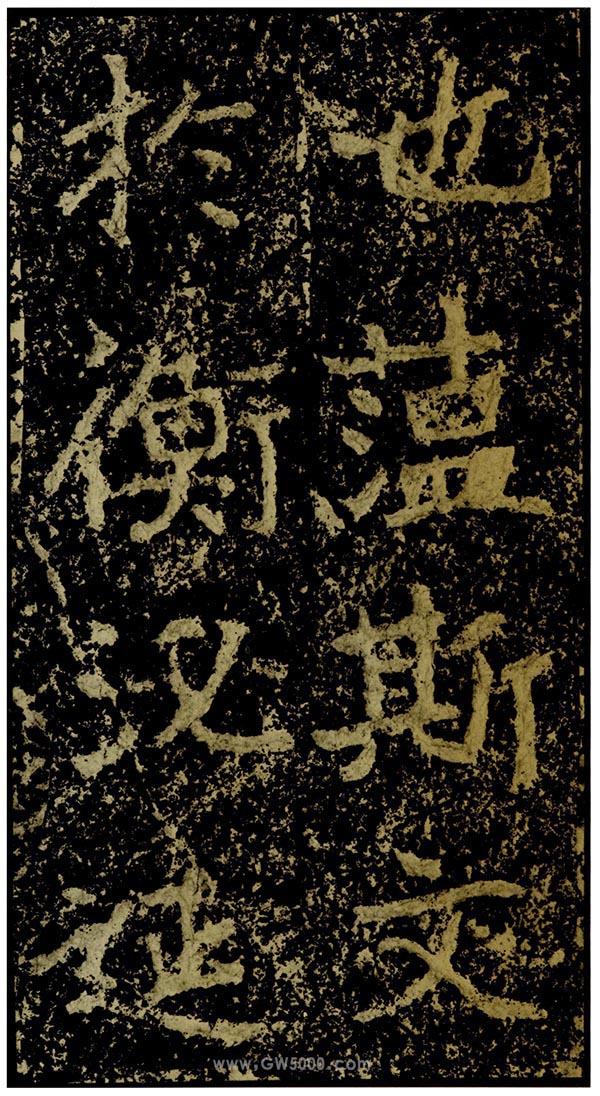 也薀斯文
於衡泌延
www.GW5000.com